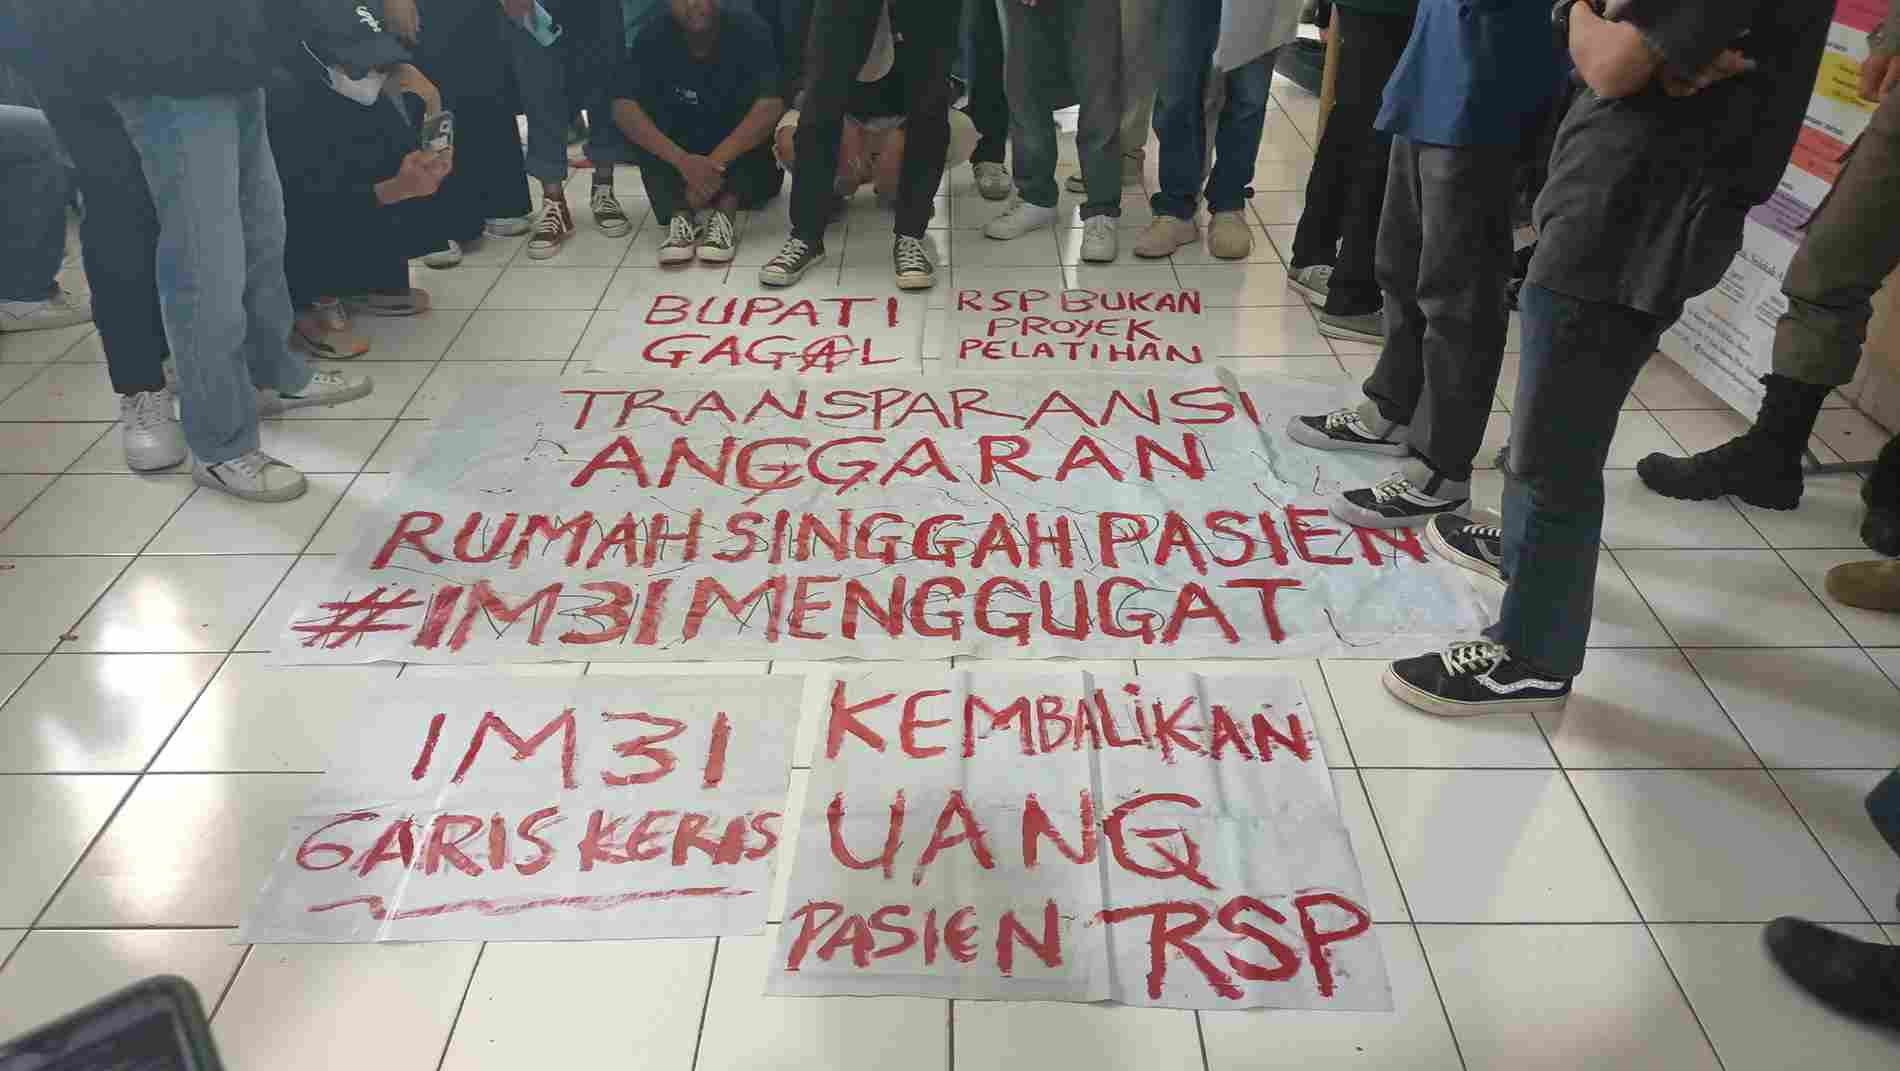 BUPATI
GAGAL
RSP BUKAN
PROYEK
PELATIHAN
TRANSPARANSI
ANGGARAN
RUMAH SINGGAH PASIEN
#IM3I MENGGUGAT
IM3I
GARIS KERAS
KEMBALIKAN
UANG
PASIEN RSP